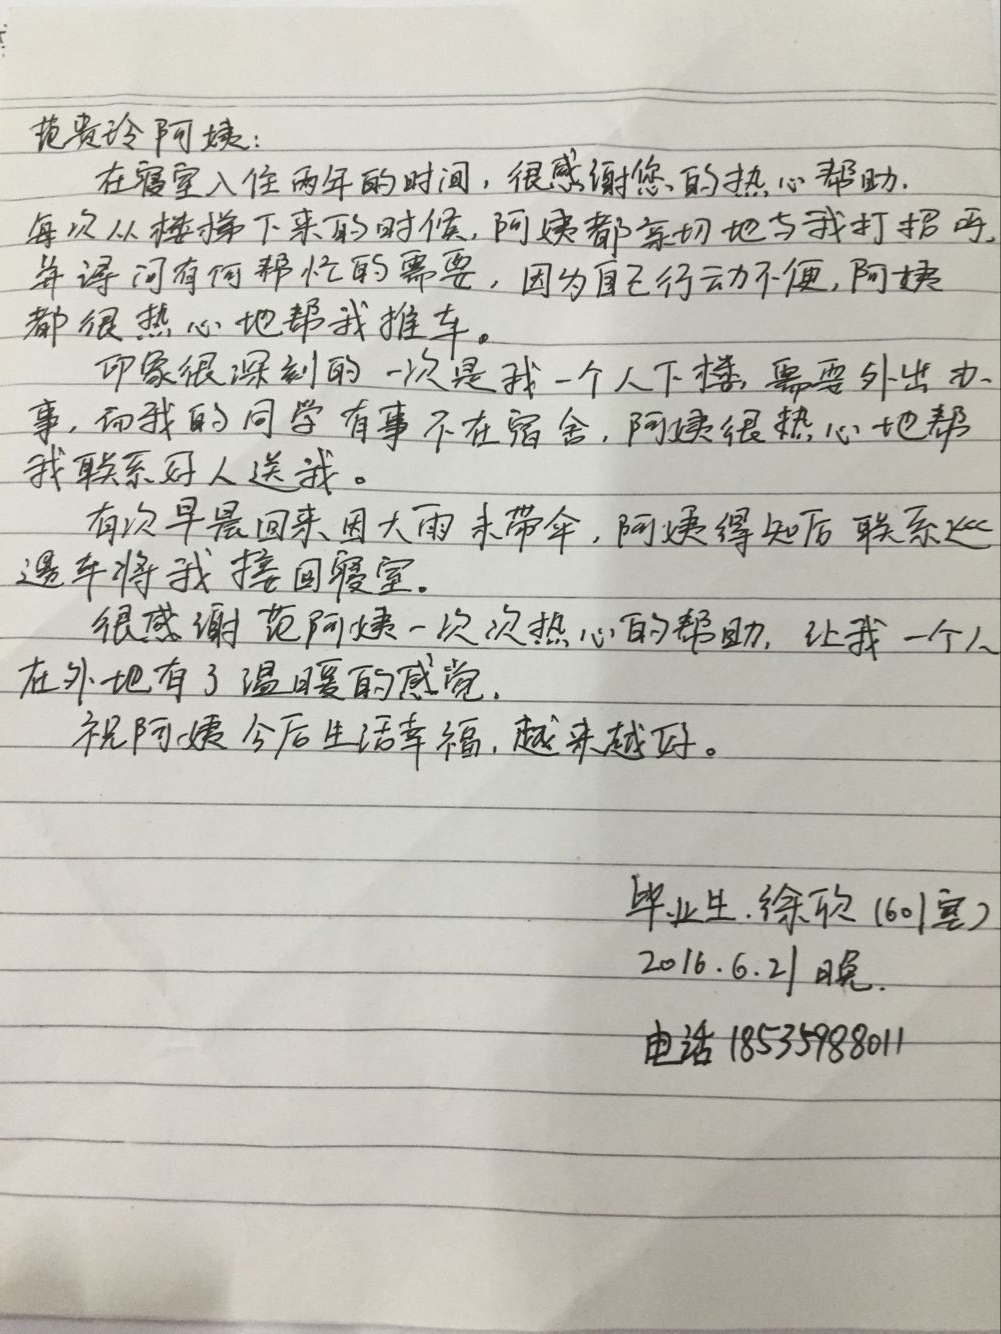 范贵玲阿姨:
在寝室入住两年的时间,很感谢您的热心帮助.
每次从楼梯下来的时候,阿姨都亲切地与我打招呼,
并询问有何帮忙的需要,因为自己行动不便,阿姨
都很热心地帮我推车。
印象很深刻的一次是我一个人下楼,需要外出办
事,而我的同学有事不在宿舍,阿姨很热心地帮
我联系好人送我。
有次早晨回来因大雨未带伞,阿姨得知后联系巡
逻车将我接回寝室。
很感谢范阿姨一次次热心的帮助,让我一个人
在外地有了温暖的感觉.
祝阿姨今后生活幸福,越来越好。
毕业生.徐欣(601室)
2016.6.21晚.
电话18535988011